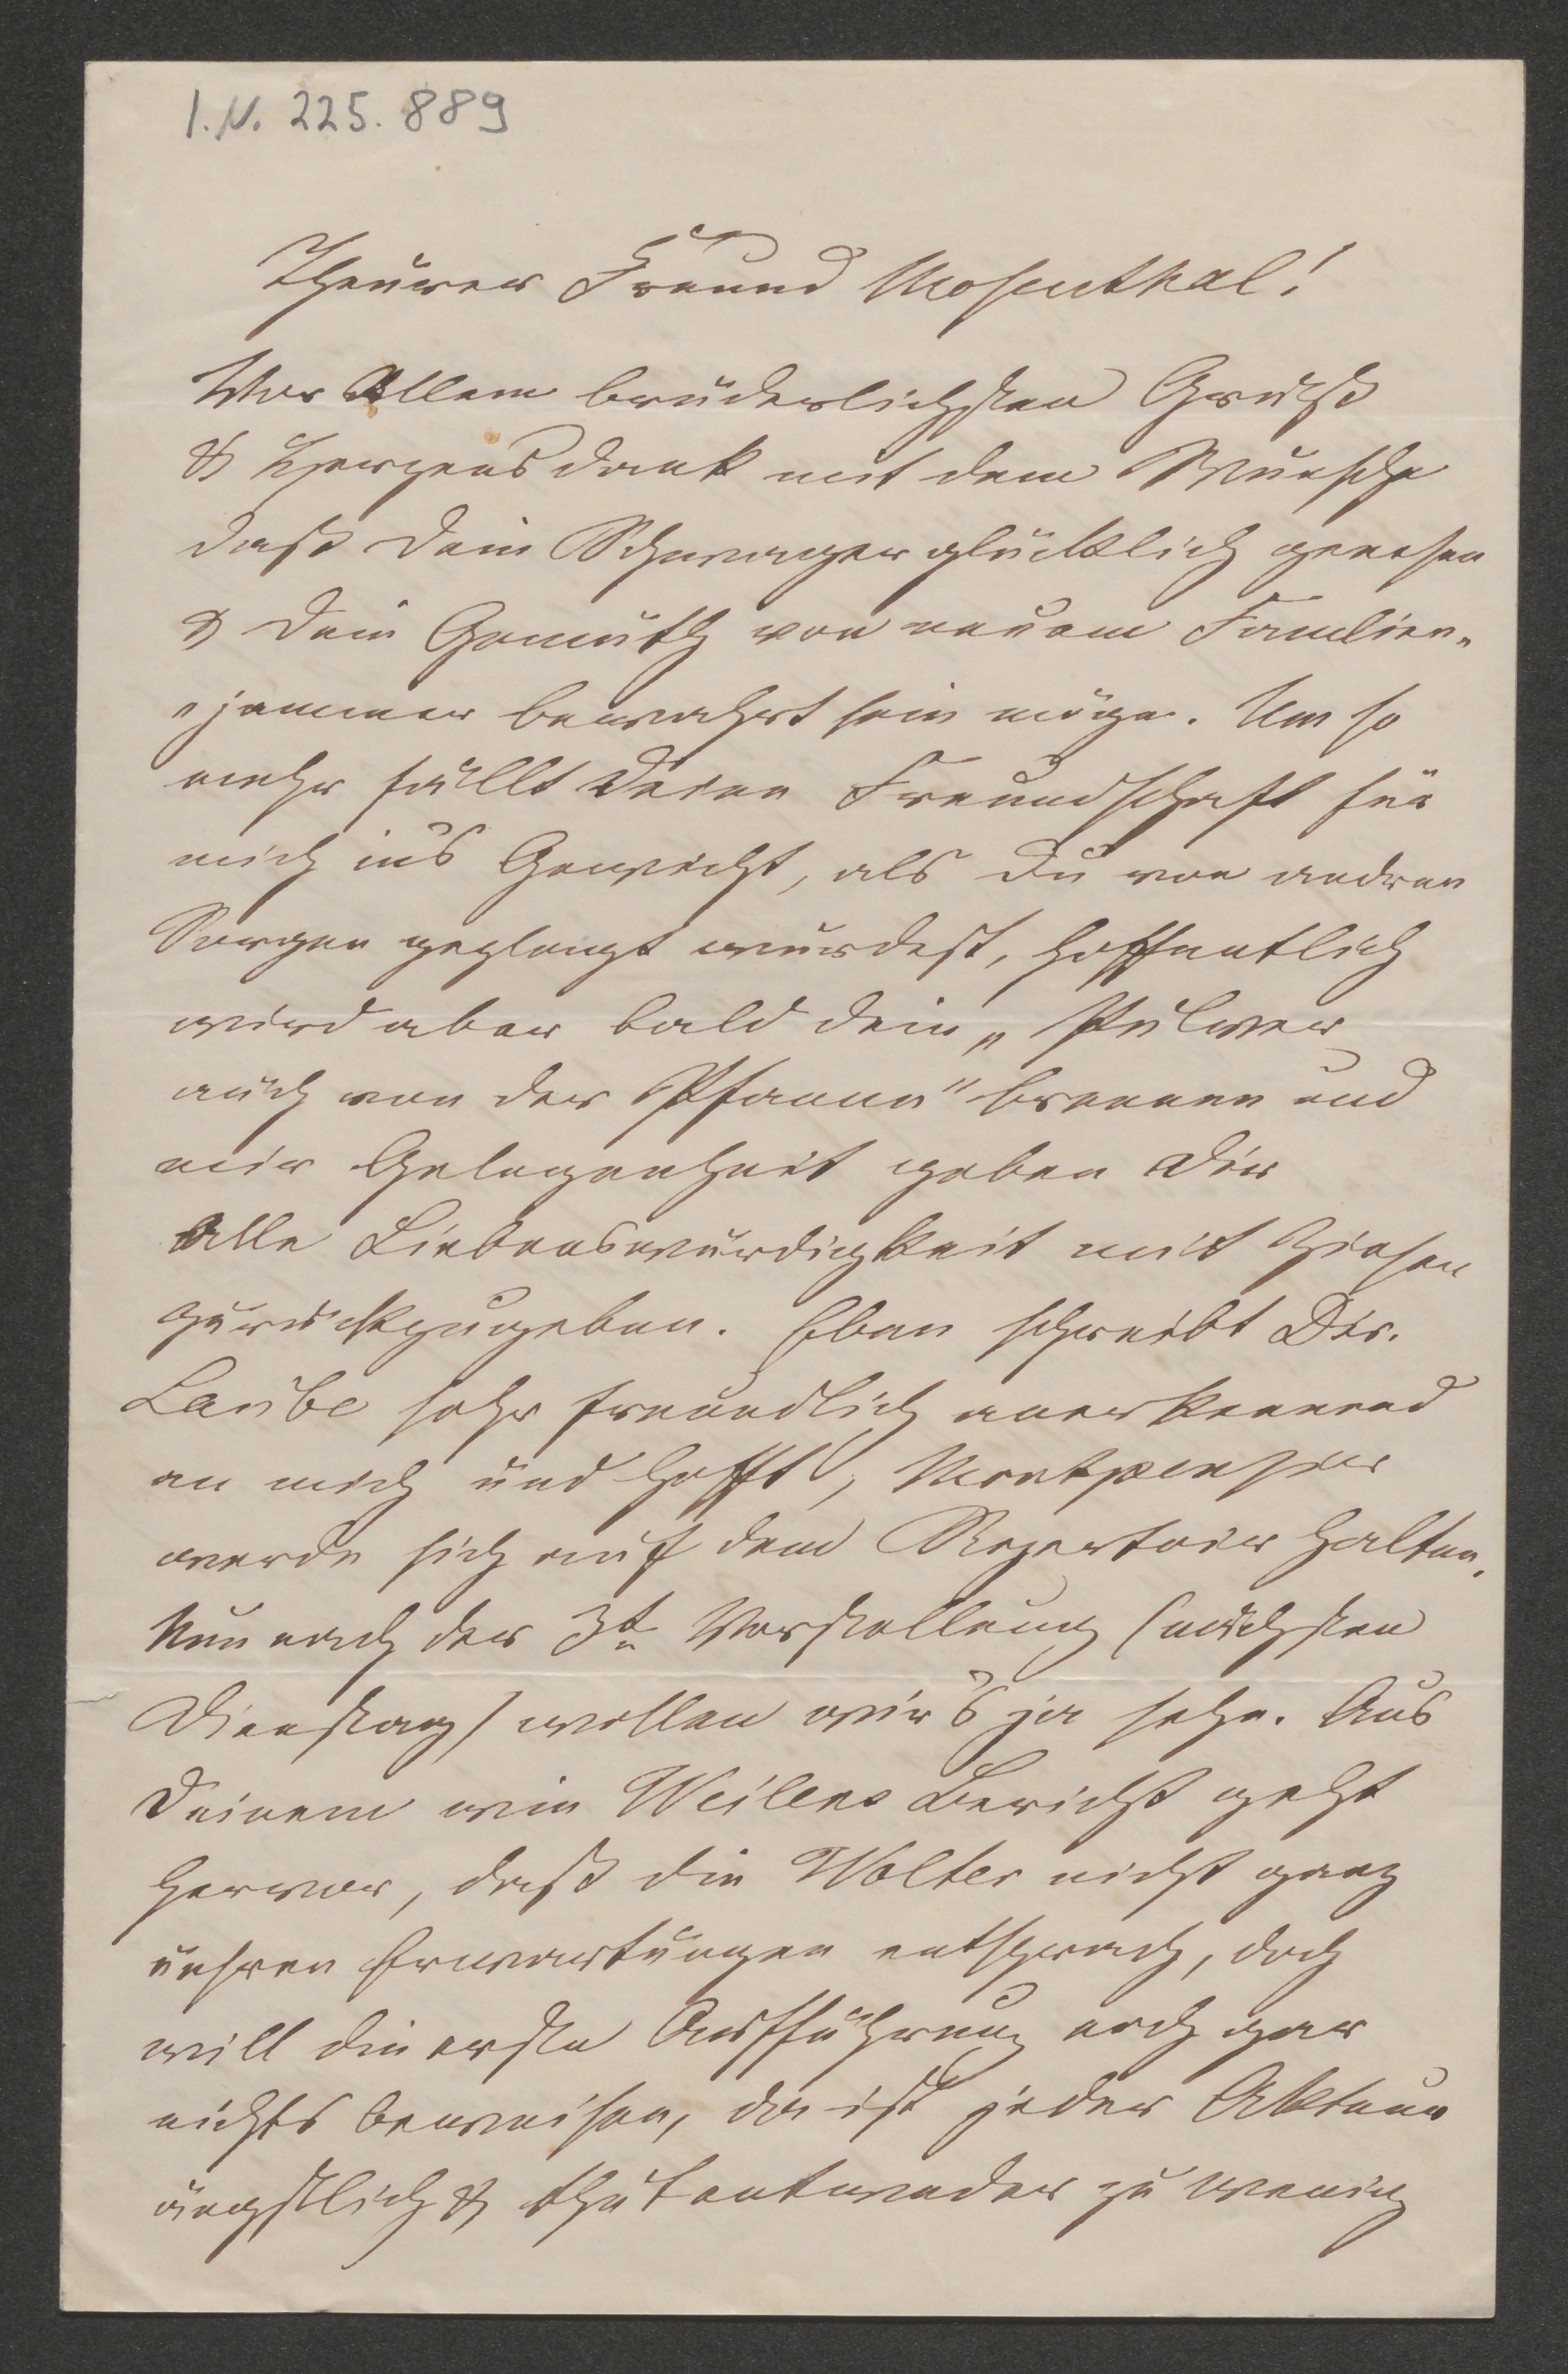 I.N. 225.889
Theurer Freund Mosenthal!
Vor Allem brüderlichsten Gruß
& Herzensdank mit dem Wunsche
daß Dein Schwager glücklich genesen
& Dein Gemüth von neuem Familien-
-jammer bewahrt sein möge. Um so
mehr fällt Deine Freundschaft für
mich ins Gewicht, als Du von andren
Sorgen geplagt wurdest, hoffentlich
wird aber bald dein „Pulver
auch von der Pfanne" brennen und
mir Gelegenheit geben Dir
Alle Liebenswürdigkeit mit Zinsen
zurückzugeben. Eben schreibt Dir.
Laube sehr freundlich anerkennend
an mich und hofft, Montpensier
werde sich auf dem Repertoir halten.
Nun nach der 3t. Vorstellung (nächsten
Dienstag) wollen wir's ja sehn. Aus
Deinem wie Weilens Bericht geht
hervor, daß die Wolter nicht ganz
unsren Erwartungen entsprach, doch
will die erste Aufführung noch gar
nichts beweisen, da ist jeder Akteur
ängstlich & thut entweder zu wenig